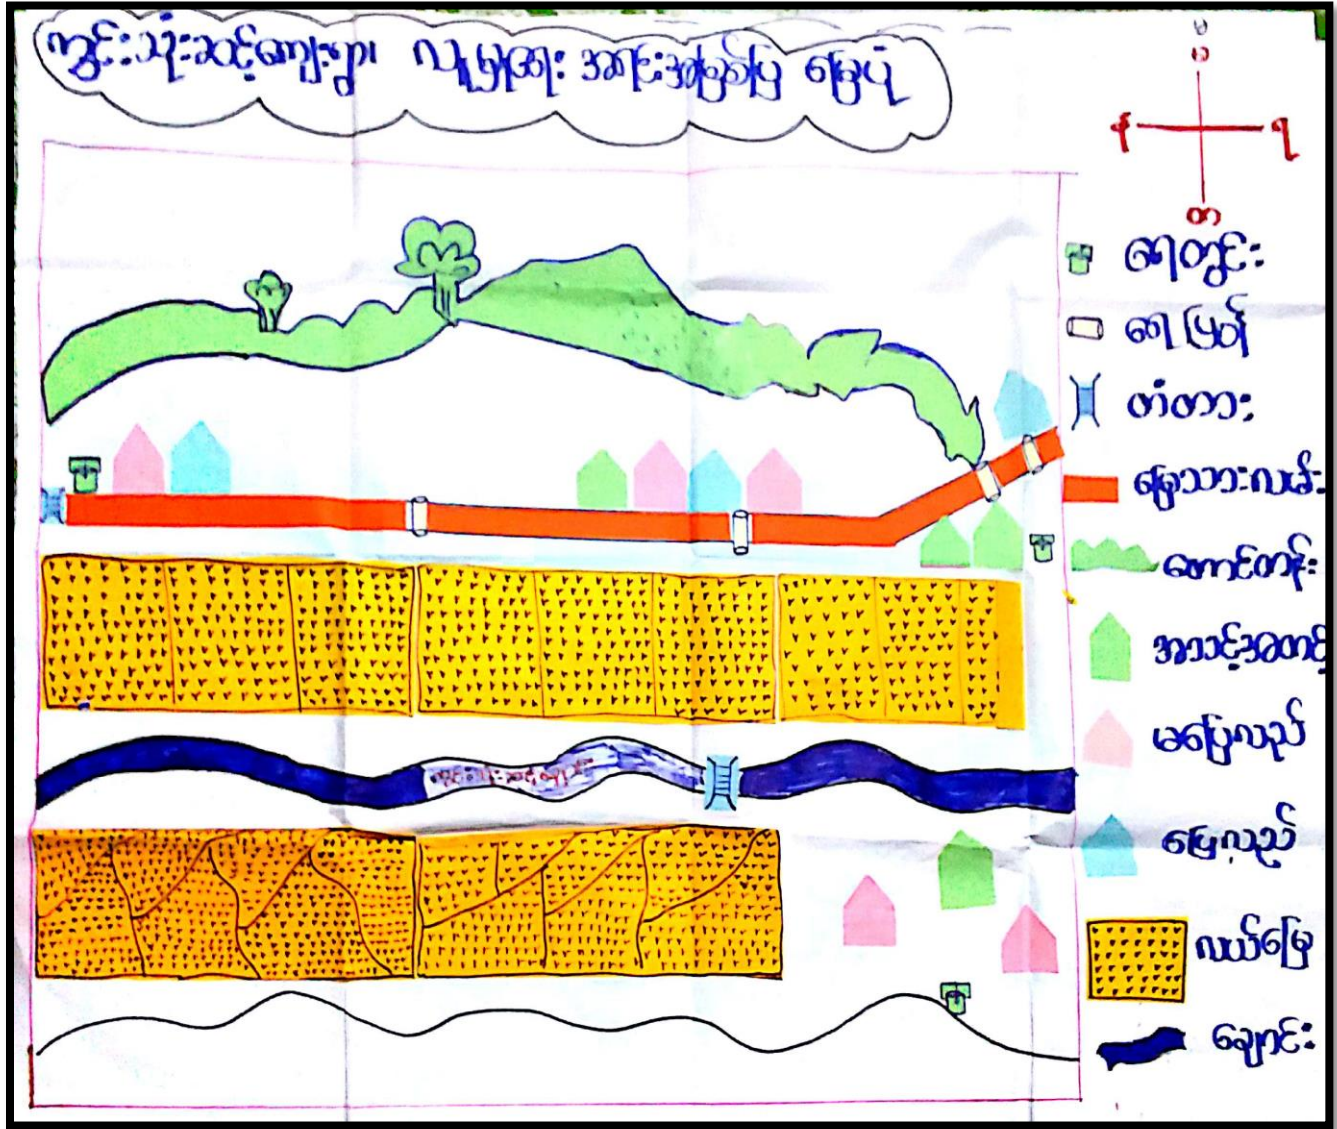 ကွင်းသုံးဆင့်ကျေးရွာ လူမှုရေး အရင်းအမြစ်ပြ မြေပုံ
မ
မ
န
ရ
တ
ရေတွင်း
ရေပြွန်
တံတား
မြေသားလမ်း
တောင်တန်း
အသင့်အတင့်
မပြေလည်
ပြေလည်
လယ်မြေ
ချောင်း